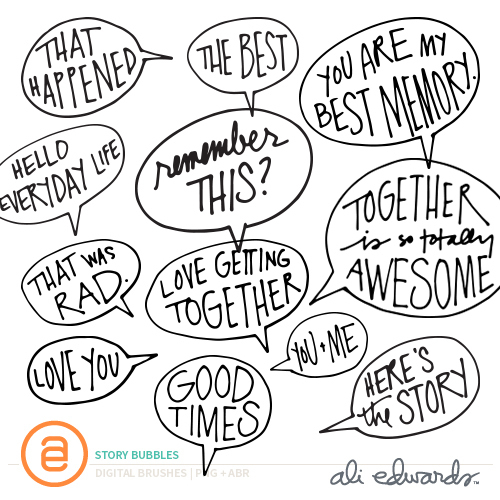 THAT
HAPPENED
THE BEST
YOU ARE MY
BEST MEMORY.
HELLO
EVERYDAY LIFE
remember
THIS?
TOGETHER
is so totally
AWESOME
THAT WAS
RAD.
LOVE GETTING
TOGETHER
YOU + ME
LOVE YOU
GOOD
TIMES
HERE'S
the STORY
a
STORY BUBBLES
DIGITAL BRUSHES | PNG + ABR
ali edwards